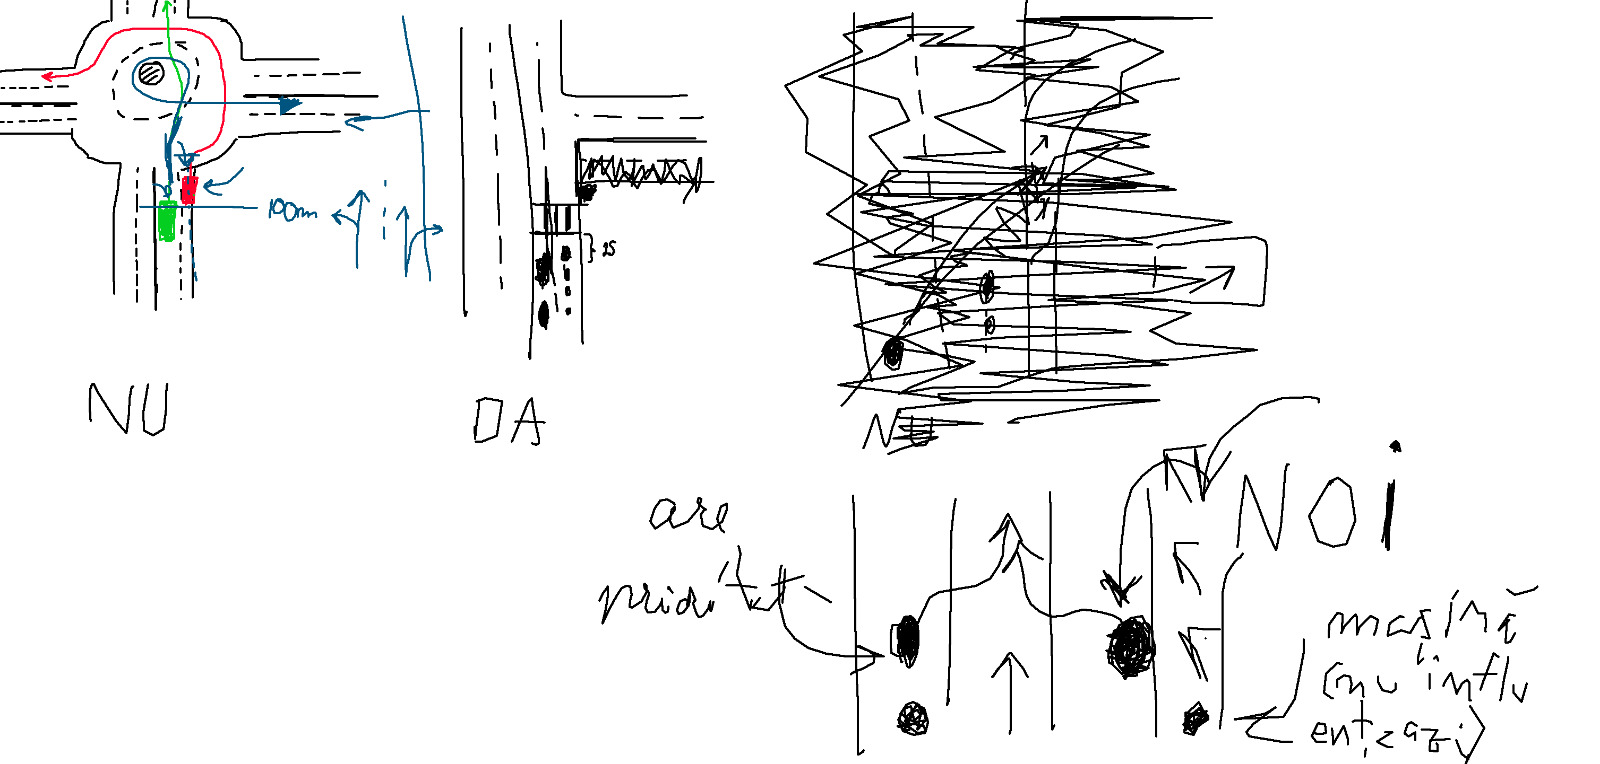 100m
25
NU
DA
NU
NOi
are
prioritate
mașină
(nu influ
ențează)